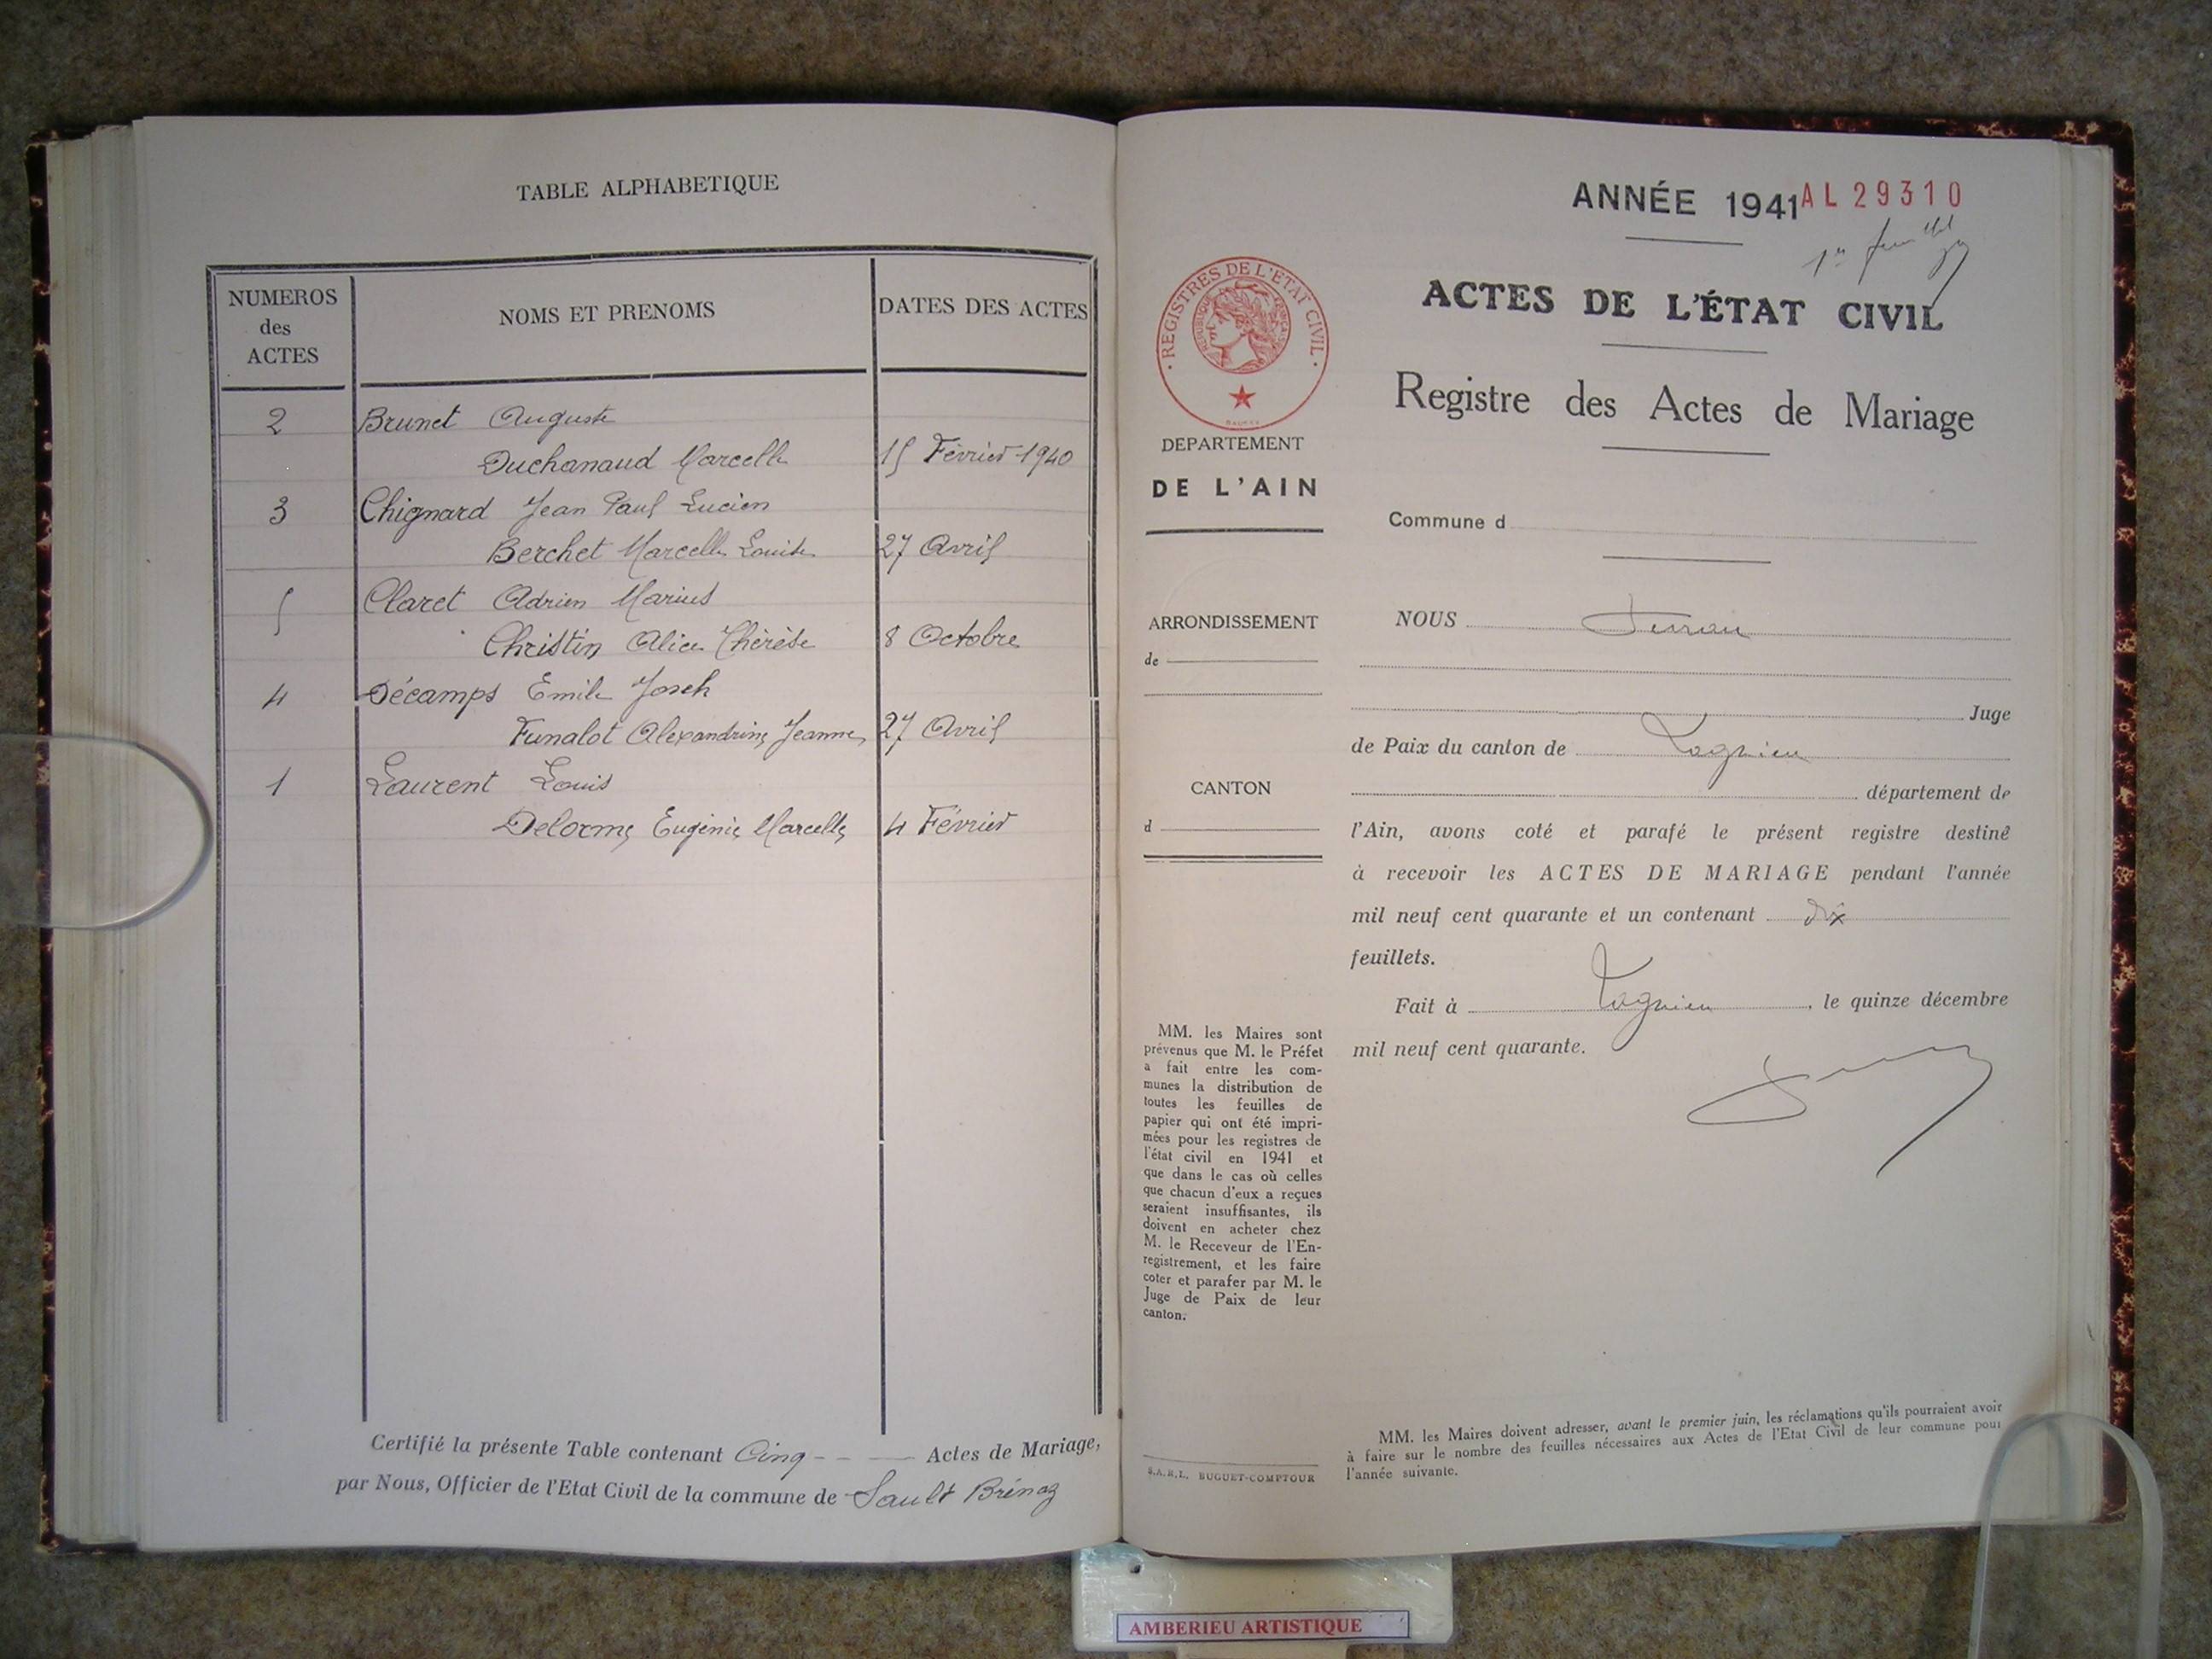 TABLE ALPHABETIQUE
NUMEROS
des
ACTES
NOMS ET PRENOMS
DATES DES ACTES
2 Brunet Auguste
Duchanaud Marcelle 15 Février 1940
3 Chignard Jean Paul Lucien
Berchet Marcelle Louise 27 Avril
5 Claret Adrien Marius
Christin Alice Thérèse 8 Octobre
4 Décamps Emile Joseh
Funalot Alexandrine Jeanne 27 Avril
1 Laurent Louis
Delorme Eugénie Marcelle 4 Février
Certifié la présente Table contenant Cinq - - — Actes de Mariage,
par Nous, Officier de l'Etat Civil de la commune de Sault Brénaz
ANNÉE 1941 AL 29310
1er feuillet
ACTES DE L'ÉTAT CIVIL
Registre des Actes de Mariage
REGISTRES DE L'ETAT CIVIL
REPUBLIQUE FRANÇAISE
DEPARTEMENT
DE L'AIN
Commune d
ARRONDISSEMENT
de
CANTON
d
NOUS
Juge
de Paix du canton de Lagnieu
département de
l'Ain, avons coté et parafé le présent registre destiné
à recevoir les ACTES DE MARIAGE pendant l'année
mil neuf cent quarante et un contenant dix
feuillets.
Fait à Lagnieu, le quinze décembre
mil neuf cent quarante.
MM. les Maires sont
prévenus que M. le Préfet
a fait entre les com-
munes la distribution de
toutes les feuilles de
papier qui ont été impri-
mées pour les registres de
l'état civil en 1941 et
que dans le cas où celles
que chacun d'eux a reçues
seraient insuffisantes, ils
doivent en acheter chez
M. le Receveur de l'En-
registrement, et les faire
coter et parafer par M. le
Juge de Paix de leur
canton.
S.A.R.L. BUGUET-COMPTOUR
MM. les Maires doivent adresser, avant le premier juin, les réclamations qu'ils pourraient avoir
à faire sur le nombre des feuilles nécessaires aux Actes de l'Etat Civil de leur commune pour
l'année suivante.
AMBERIEU ARTISTIQUE